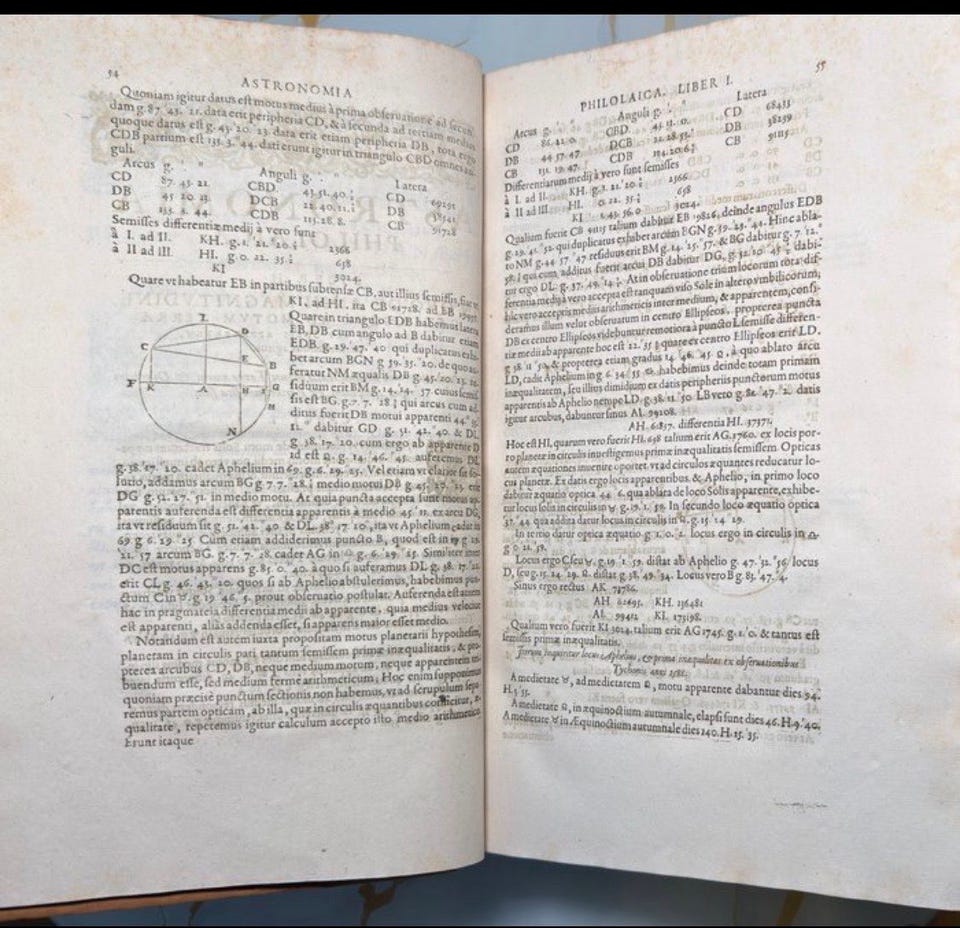 54
ASTRONOMIA
Quoniam igitur datus est motus medius à prima obseruatione ad secun
dam g. 87. 43. 21. data erit peripheria CD, & à secunda ad tertiam medius
quoque datus est g. 45. 20. 23. data erit etiam peripheria DB, tota ergo
CDB partium est 133. 3. 44. dati erunt igitur in triangulo CBD omnes an
guli.
Arcus g. Anguli g. Latera
CD 87. 43. 21. CBD CD 69291
DB 45 20. 23. DCB DB 38541
CB 133. 3. 44. CDB CB 91728
Semisses differentiæ medij à vero sunt
à I. ad II. KH. g. 1. 21. 20. 2366
à II ad III. HI. g. 0. 22. 35. 658
KI 3024.
Quare vt habeatur EB in partibus subtensæ CB, aut illius semissis, fiat vt
KI, ad HI. ita CB 91728. ad EB
Quare in triangulo EDB habemus latera
EB, DB cum angulo ad B dabitur etiam
EDB. g. 29. 47. 40 qui duplicatus exhi-
bet arcum BGN g. 59. 35. 20. de quo au-
feratur NM æqualis DB g. 45. 20. 23.
siduum erit BM g. 14. 14. 57 cuius semis-
sis est BG. g. 7. 7. 28 qui arcus cum ad-
ditus fuerit DB motui apparenti 44.
dabitur GD g. 51. 42. 40 & DL
g 38. 17. 20. cum ergo ab apparente D
id est ♌. g. 14. 46. 45 auferemus DL
I
D
C
B
E
F
K
A
H
I
G
M
N
g. 38. 17. 20. cadet Aphelium in 69. g. 6. 29. 25. Vel etiam vt clarior sit so-
lutio, addamus arcum BG g 7. 7. 28. medio motui DB g. 45. erit
DG g. 52. 27. 51. in medio motu. At quia puncta accepta sunt motus ap-
parentis auferenda est differentia apparentis à medio 45 11. ex arcu DG,
ita vt residuum sit g. 51. 42. 40 & DL. 38. 17. 20, ita vt Aphelium cadat in
69. g 6. 29 25 Cum etiam addiderimus puncto B, quod est in g
21. 57 arcum BG. g. 7. 7. 28. cadet AG in g. 6. 29. 25. Similiter
DC est motus apparens g. 85. 0. 40. à quo si auferamus DL g 38. 17.
erit CL g. 46. 43. 20. quos si ab Aphelio abstulerimus, habebimus pun-
ctum C in ♉. g 19. 46. 5. prout obseruatio postulat. Auferenda est autem
hac in pragmateia differentia medii ab apparente, quia medius velocior
est apparenti, alias addenda esset, si apparens maior esset medio.
Notandum est autem iuxta propositam motus planetarii hypothesim,
planetam in circulis pati tantum semissem primæ inæqualitatis, & pro
pterea arcubus CD, DB, neque medium motum, neque apparentem tri
buendum esse, sed medium ferme arithmeticum; Hoc enim supponimus
quoniam præcise punctum sectionis non habemus, vt ad scrupulum supe
remus partem opticam, ab illa, quæ in circulis æquantibus conficitur,
qualitate, repetemus igitur calculum accepto isto medio arithmetico.
Erunt itaque
55
PHILOLAICA. LIBER I.
Arcus g. Anguli g. Latera
CD CBD. 43. 11. 0. CD 68433
DB 44 57. 47. DCB DB 38239
CB 131. 19. 47. CDB CB 91115
Differentiarum medij à vero sunt semisses
à I. ad II. KH. g. 1. 21. 20. 2366
à II ad III. HI. 0. 22. 35. 658
KI 1. 43. 56. 0 3024.
Qualium fuerit CB 91115 talium dabitur EB 19826, deinde angulus EDB
g. 29. 41. 52. qui duplicatus exhibet arcum BGN g. 59. 23. 44. Hinc abla-
to NM g. 44 57 47 residuus erit BM g. 14. 25. 57. & BG dabitur g. 7. 12.
58. qui cum, additus fuerit arcui DB dabitur DG, g. 52. 10. 45 dabi-
tur ergo DL. g. 37. 49. 14. At in obseruatione trium locorum tota dif-
ferentia medij à vero accepta est tanquam viso Sole in altero vmbilicorum,
hîc vero acceptis mediis arithmeticis inter medium, & apparentem, consi-
deramus illum velut obseruatum in centro Ellipseos, propterea puncta
DB ex centro Ellipseos videbuntur remotiora à puncto L semisse differen-
tiæ medii ab apparente hoc est 22. 35 quare ex centro Ellipseos erit LD.
g 38. 11. 50, & propterea etiam gradus 14. 46. 45 ♌, à quo ablato arcu
LD, cadit Aphelium in g. 6 34. 55 habemus deinde totam primam
inæqualitatem, seu illius dimidium ex datis peripheriis punctorum motus
apparentis ab Aphelio nempe LD. g. 38. 11. 50. LB vero g. 82. 47. 2. datis
igitur arcubus, dabuntur sinus AI. 99208.
AH. 61837. differentia HI. 37371.
Hoc est HI, quarum vero fuerit HI. 658 talium erit AG. 1760. ex locis por-
ro planetæ in circulis inuestigemus primæ inæqualitatis semissem. Opticas
autem æquationes inuenire oportet. vt ad circulos æquantes reducatur lo-
cus planetæ. Ex datis ergo locis apparentibus, & Aphelio, in primo loco
dabitur æquatio optica 44 6. qua ablata de loco Solis apparente, exhibe-
tur locus solis in circulis in ♉ g. 19. 1. 59. In secundo loco æquatio optica
37. 44 qua addita datur locus in circulis in ♌. g. 15. 14 29.
In tertio datur optica æquatio g. 1. 0. 2. locus ergo in circulis in ♎.
g 0 21. 59.
Locus ergo C, seu ♉. g. 19 1 59. distat ab Aphelio g. 47. 32. 56. locus
D, seu g. 15. 14. 29. ♌. distat g. 38. 49. 34. Locus vero B g. 83. 47. 4.
Sinus ergo rectus AK 73786.
AH 62695. KH. 136481
AI. 99412 KI. 173198.
Qualium vero fuerit KI 3024. talium erit AG 1745. g. 1. 0. & tantus est
semissis primæ inæqualitatis.
Iterum inquiritur locus Aphelius, & prima inæqualitas ex obseruationibus
Tychonis anni 1585.
A medietate ♉, ad medietatem ♌, motu apparente dabantur dies 94.
H. 3 55.
A medietate ♌, in æquinoctium autumnale, elapsi sunt dies 46. H. 9. 40.
A medietate ♉ in Æquinoctium autumnale dies 140. H. 13. 35.